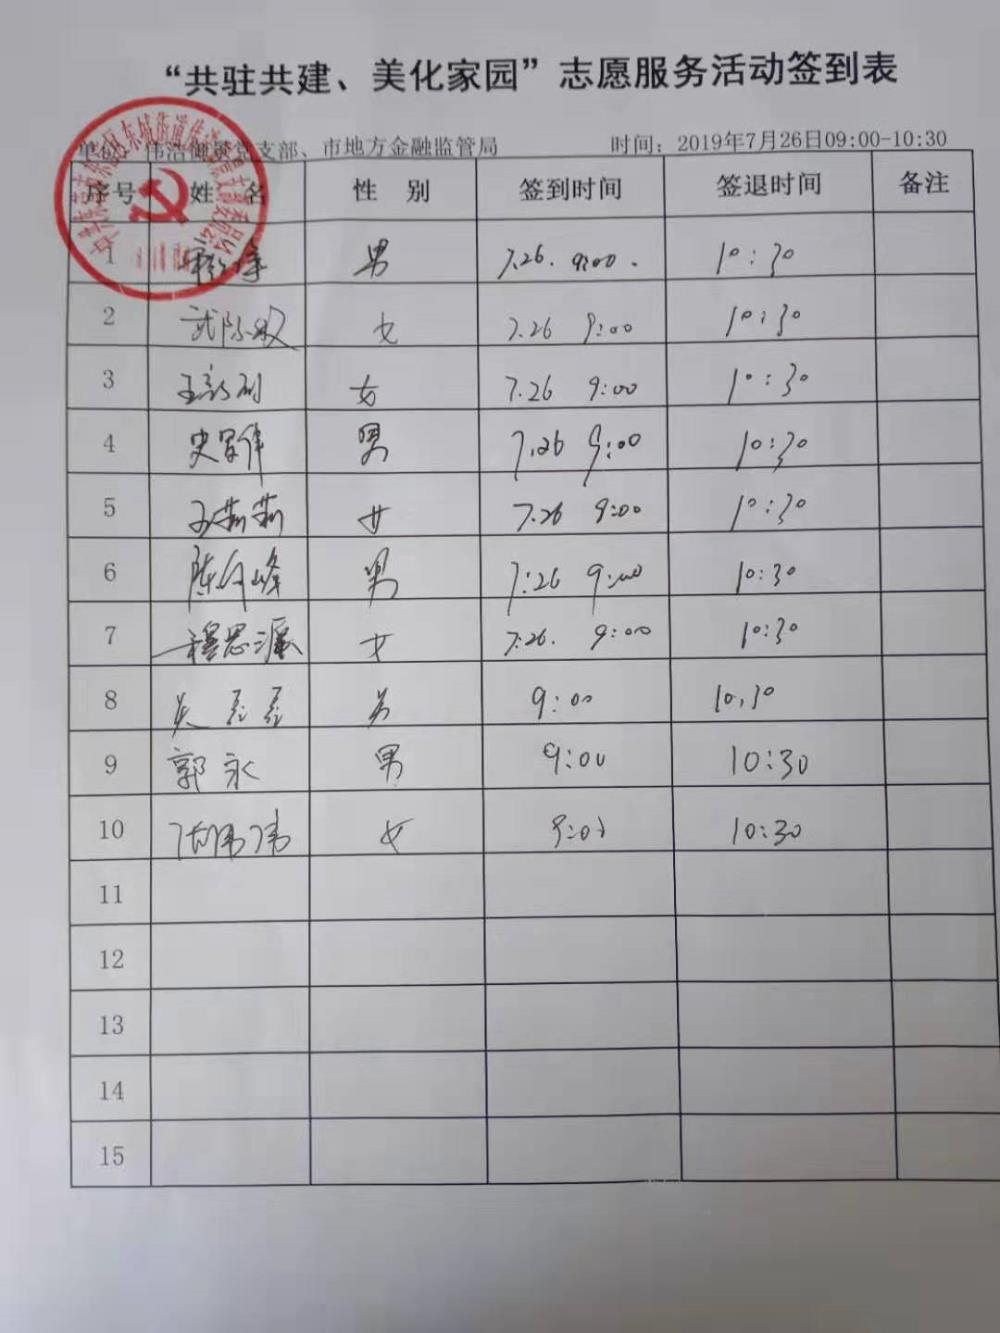 “共驻共建、美化家园”志愿服务活动签到表
支部、市地方金融监管局 时间：2019年7月26日09:00-10:30
序号 姓 名 性 别 签到时间 签退时间 备注
1 男 7.26. 9:00. 10:30
2 女 7.26 9:00 10:30
3 女 7.26 9:00 10:30
4 史军伟 男 7.26 9:00 10:30
5 王莉莉 女 7.26 9:00 10:30
6 男 7:26 9:00 10:30
7 穆思源 女 7.26. 9:00 10:30
8 男 9:00 10.30
9 郭永 男 9:00 10:30
10 女 9:0 10:30
11
12
13
14
15